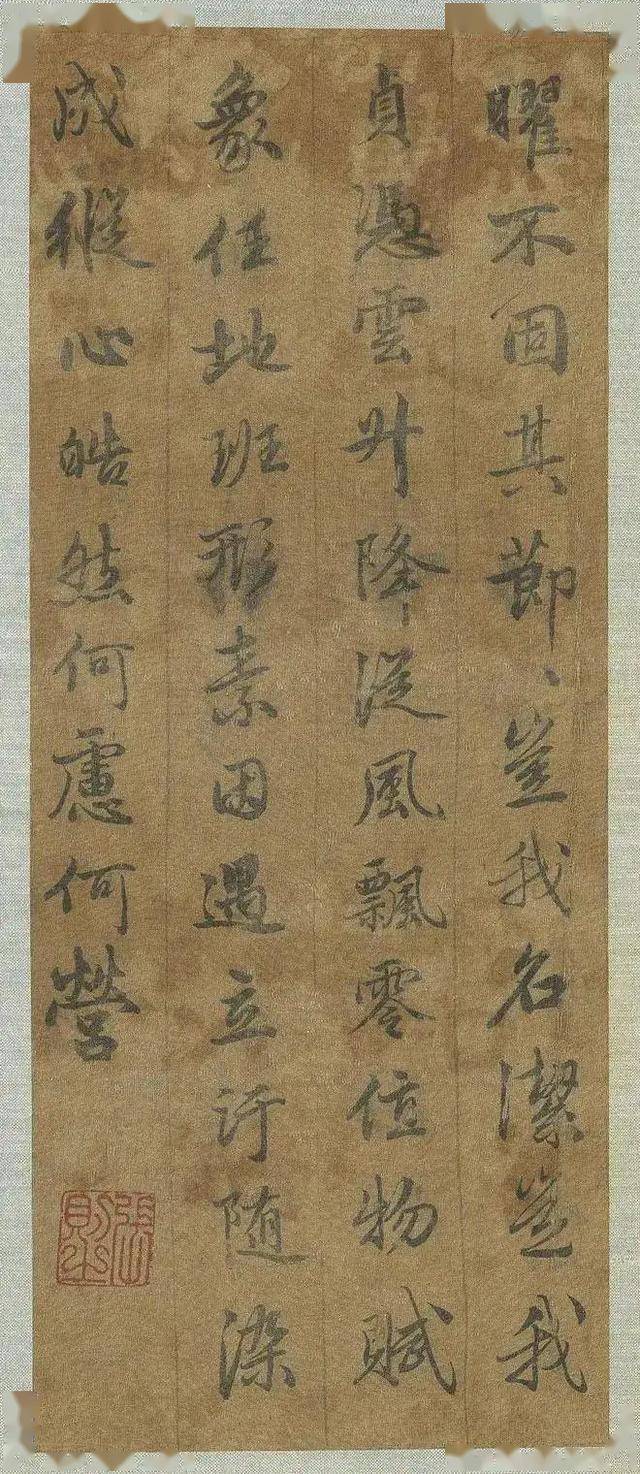 曜不固其節、豈我名潔豈我
貞憑雲升降從風飄零値物賦
象任地班形素因遇立汙随染
成縱心皓然何慮何營